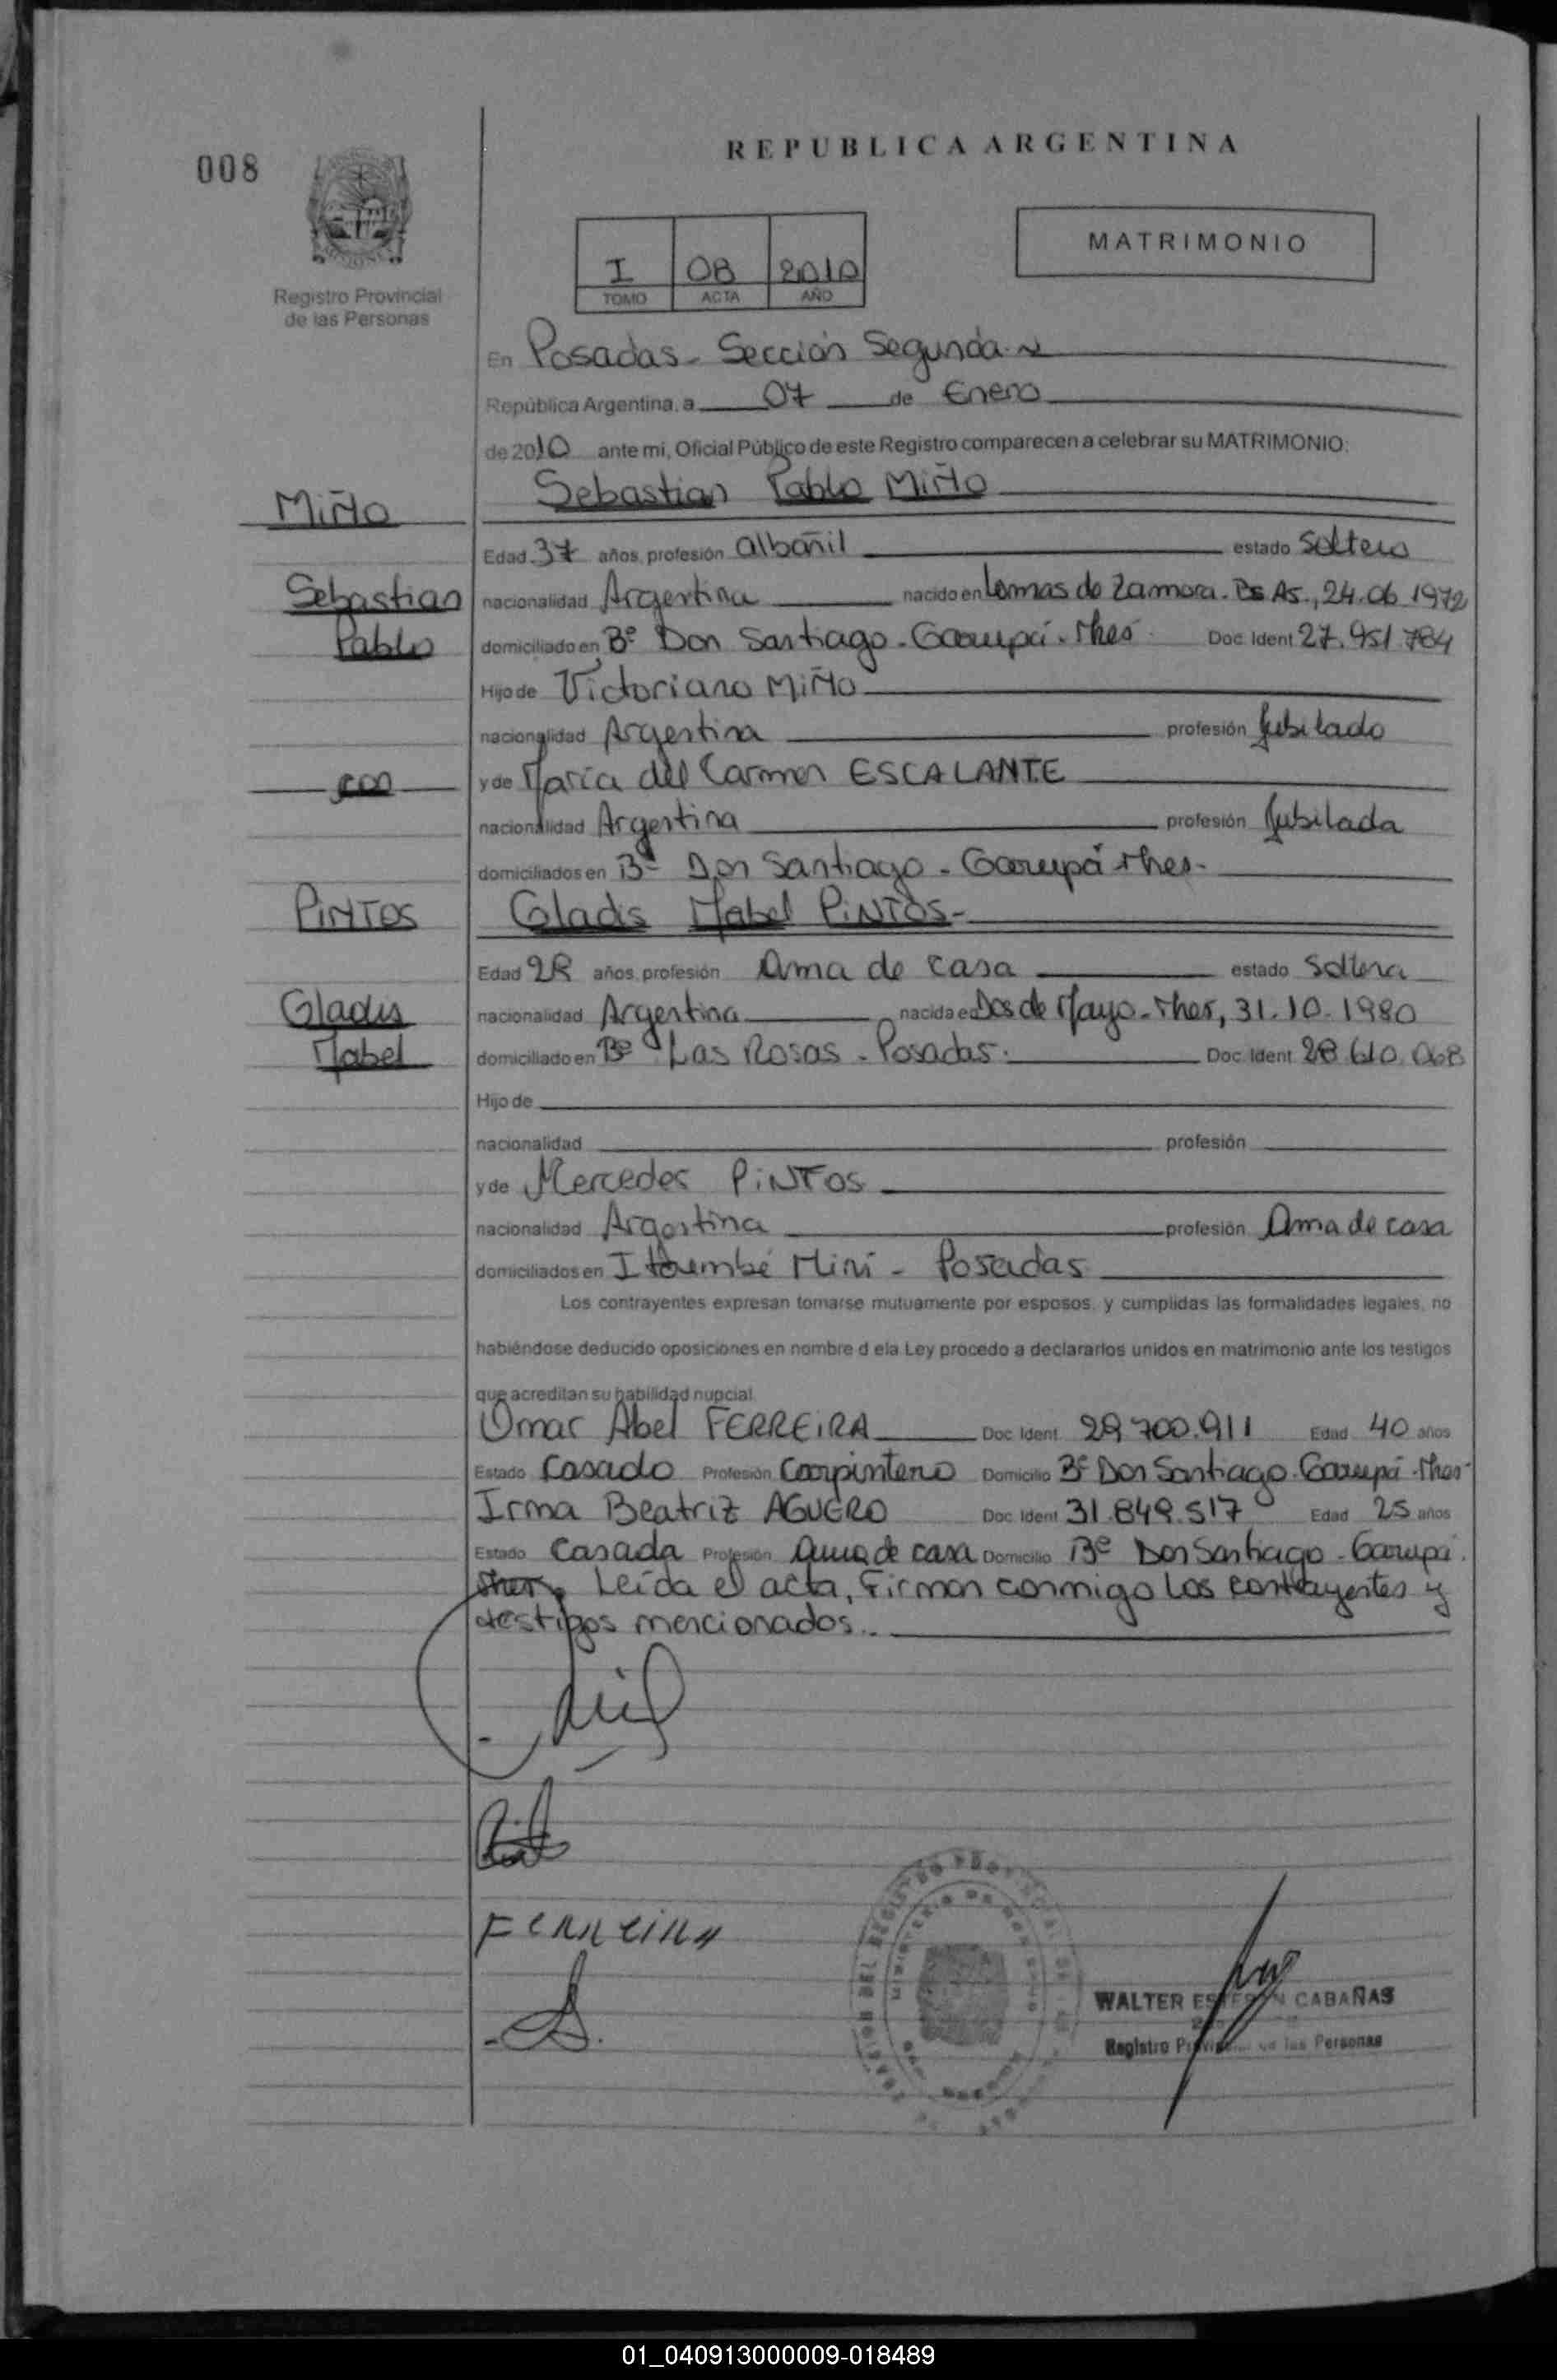 008
REPUBLICA ARGENTINA
MATRIMONIO
I 08 2010
TOMO ACTA AÑO
Registro Provincial
de las Personas
En Posadas - Sección Segunda
República Argentina, a 07 de Enero
de 2010 ante mi, Oficial Público de este Registro comparecen a celebrar su MATRIMONIO:
Miño
Sebastian Pablo Miño
Edad 37 años, profesión albañil estado Soltero
Sebastian
nacionalidad Argentina nacido en Lomas de Zamora. Bs As., 24.06.1972
Pablo
domiciliado en Bº Don Santiago - Garupá - Mnes Doc. Ident 27.951.784
Hijo de Victoriano Miño
nacionalidad Argentina profesión Jubilado
con
y de María del Carmen ESCALANTE
nacionalidad Argentina profesión Jubilada
domiciliados en Bº Don Santiago - Garupá Mnes-
PINTOS
Gladis Mabel PINTOS-
Edad 28 años, profesión Ama de casa estado Soltera
Gladis
nacionalidad Argentina nacida en Dos de Mayo - Mnes, 31.10.1980
Mabel
domiciliado en Bº Las Rosas - Posadas. Doc. Ident. 28.610.068
Hijo de
nacionalidad profesión
y de Mercedes PINTOS
nacionalidad Argentina profesión Ama de casa
domiciliados en Itaembé Miní - Posadas
Los contrayentes expresan tomarse mutuamente por esposos, y cumplidas las formalidades legales, no
habiéndose deducido oposiciones en nombre d ela Ley procedo a declararlos unidos en matrimonio ante los testigos
que acreditan su habilidad nupcial.
Omar Abel FERREIRA Doc. Ident. 29.700.911 Edad 40 años
Estado Casado Profesión Carpintero Domicilio Bº Don Santiago - Garupá - Mnes
Irma Beatriz AGUERO Doc. Ident 31.849.517 Edad 25 años
Estado Casada Profesión Ama de casa Domicilio Bº Don Santiago - Garupá.
Mnes. Leída el acta, Firman conmigo los contrayentes y
testigos mencionados.-
FERREIRA
WALTER ESTEBAN CABAÑAS
Registro Provincial de las Personas
01_040913000009-018489